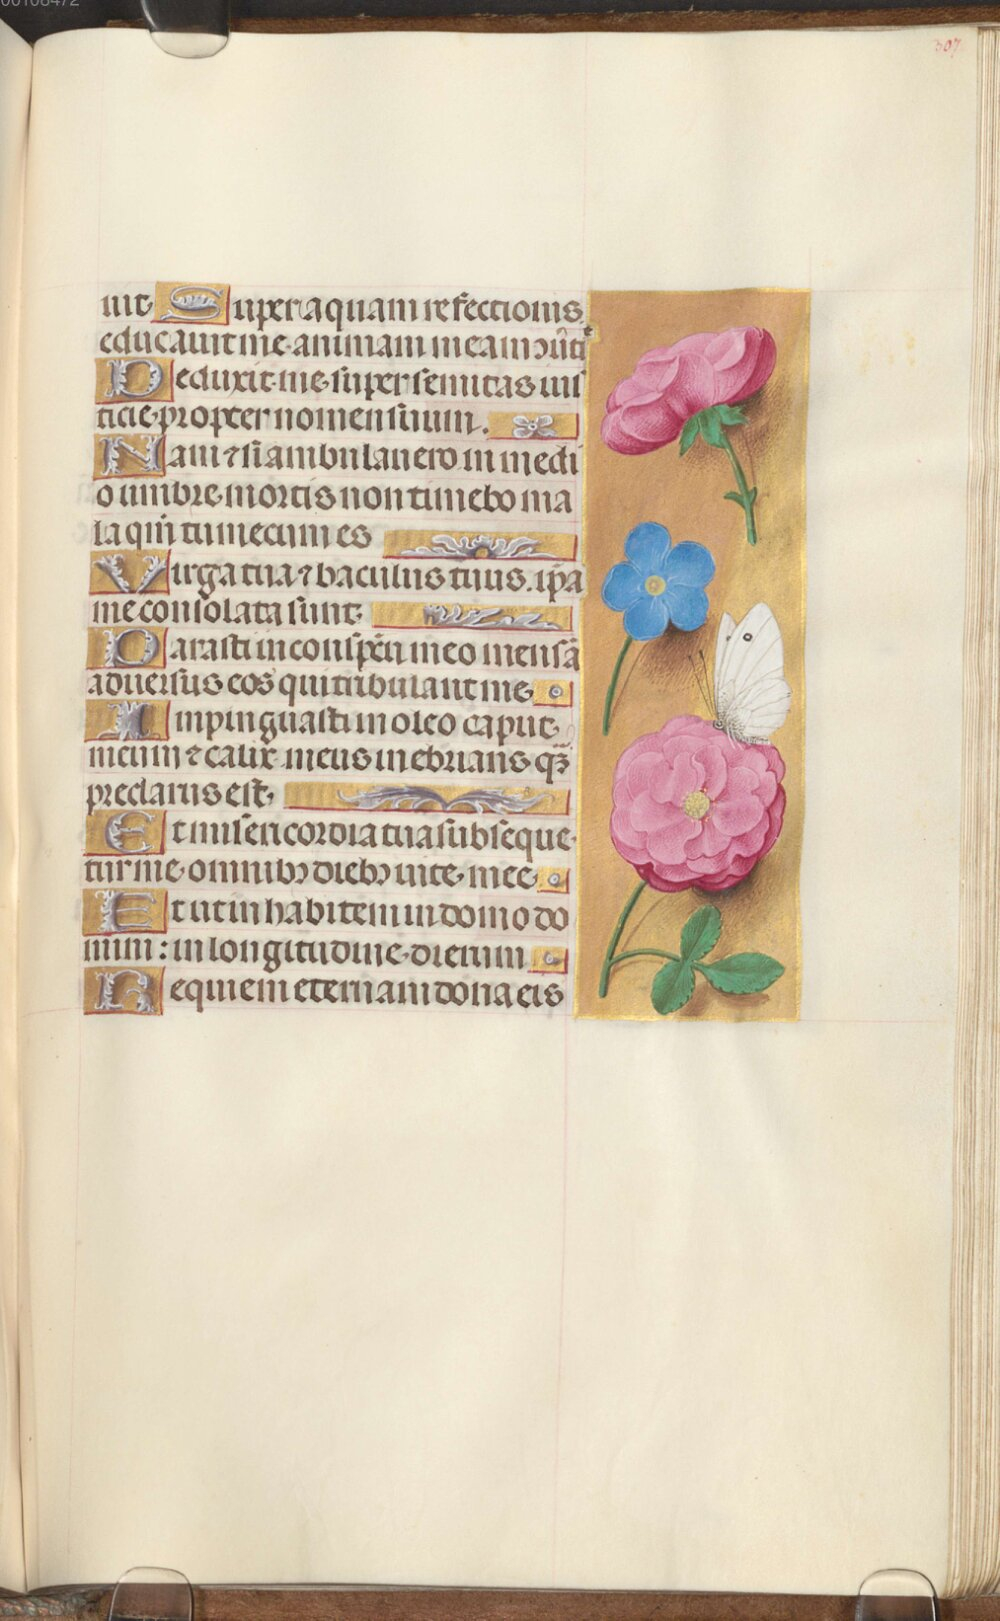 00108472
307
uit Super aquam refectionis
educauit me animam meam ↄūtit
Deduxit me super semitas ius
ticie propter nomen suum.
Nam ⁊ si ambulauero in medi
o umbre mortis non timebo ma
la qm̄ tu mecum es
Virga tua ⁊ baculus tuus. ip̄a
me consolata sunt
Parasti in conspc̄u meo mensā
aduersus eos qui tribulant me
Inpinguasti in oleo caput
meum ⁊ calix meus inebrians qȝ̄
preclarus est
Et misericordia tua subseque
tur me omnibȝ diebȝ uite mee
Et ut inhabitem in domo do
mini: in longitudine dierum
Requiem eternam dona eis